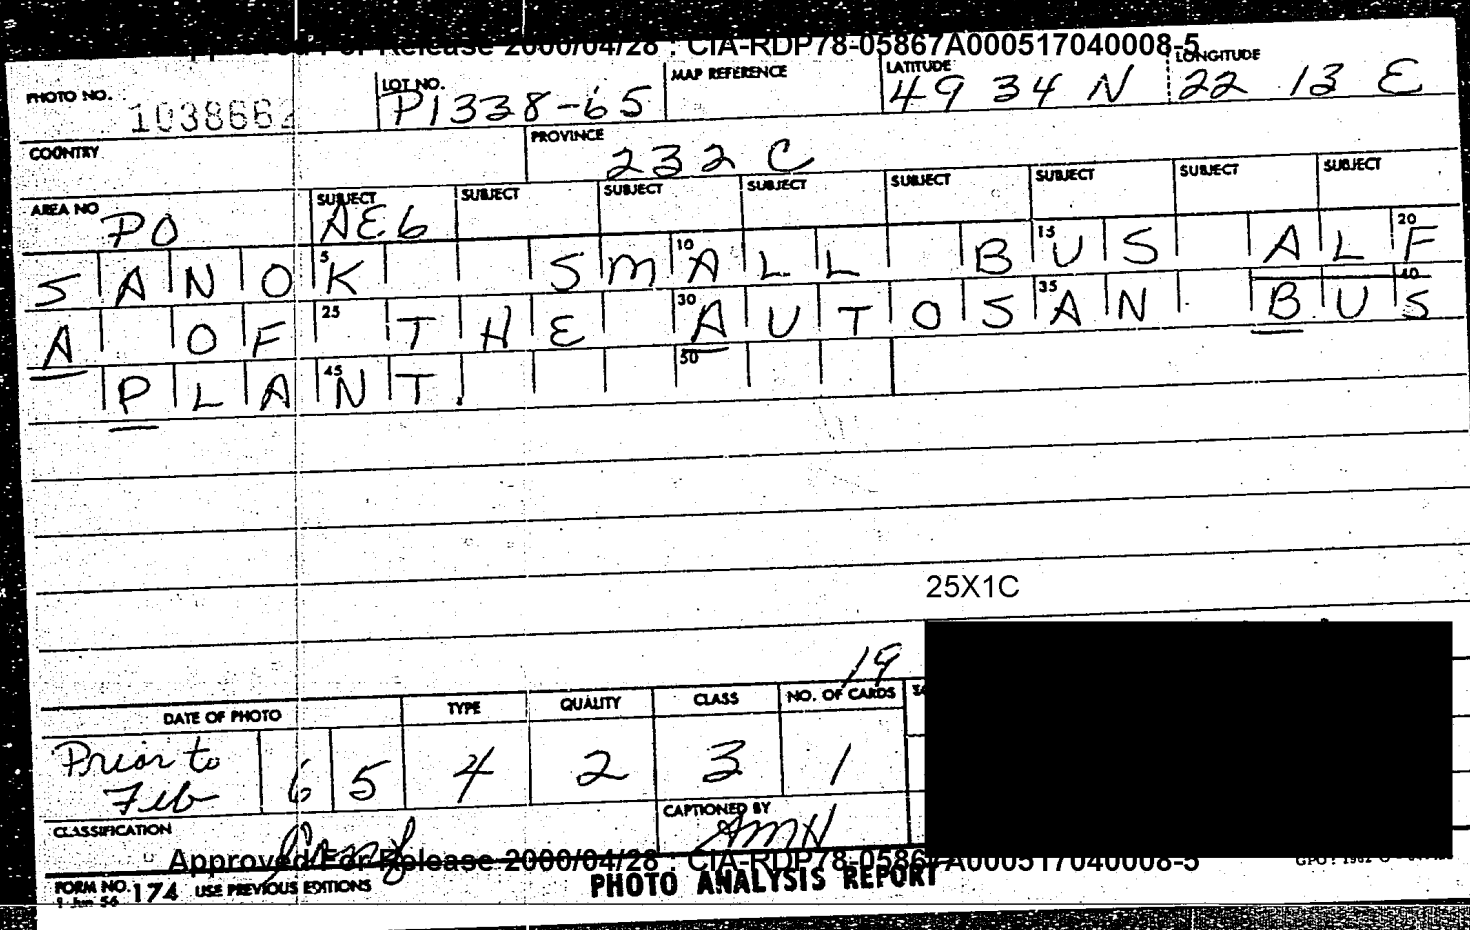 Approved For Release 2000/04/28 : CIA-RDP78-05867A000517040008-5
PHOTO NO. 1038662 LOT NO. P1338-65 MAP REFERENCE LATITUDE 49 34 N LONGITUDE 22 13 E
COUNTRY PROVINCE 232 C
AREA NO PO SUBJECT AE6 SUBJECT SUBJECT SUBJECT SUBJECT SUBJECT SUBJECT SUBJECT
5 10 15 20
SANOK SMALL BUS ALF
25 30 35 40
A OF THE AUTOSAN BUS
45 50
PLANT.
25X1C
19
DATE OF PHOTO TYPE QUALITY CLASS NO. OF CARDS
Prior to Feb 65 4 2 3 1
CLASSIFICATION Conf CAPTIONED BY AMH
Approved For Release 2000/04/28 : CIA-RDP78-05867A000517040008-5
FORM NO. 174 USE PREVIOUS EDITIONS PHOTO ANALYSIS REPORT
1 Jun 56